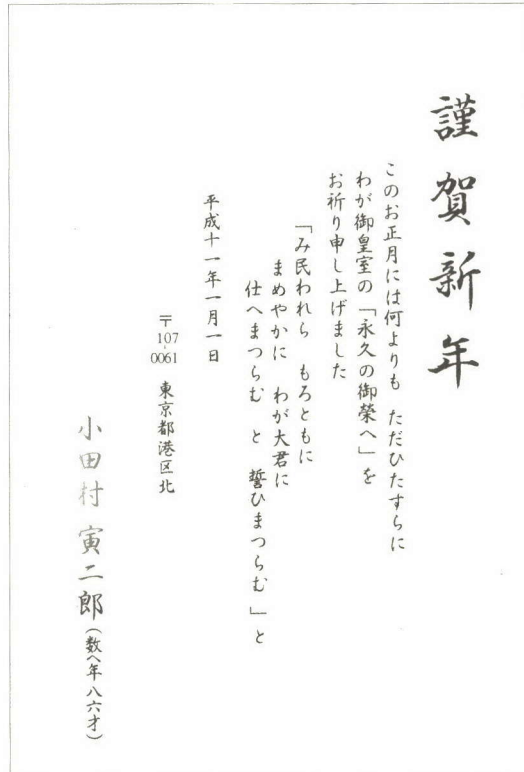 謹賀新年
このお正月には何よりも ただひたすらに
わが御皇室の「永久の御榮へ」を
お祈り申し上げました
「み民われら もろともに
まめやかに わが大君に
仕へまつらむ と 誓ひまつらむ」と
平成十一年一月一日
〒107-0061 東京都港区北
小田村寅二郎(数へ年八六才)